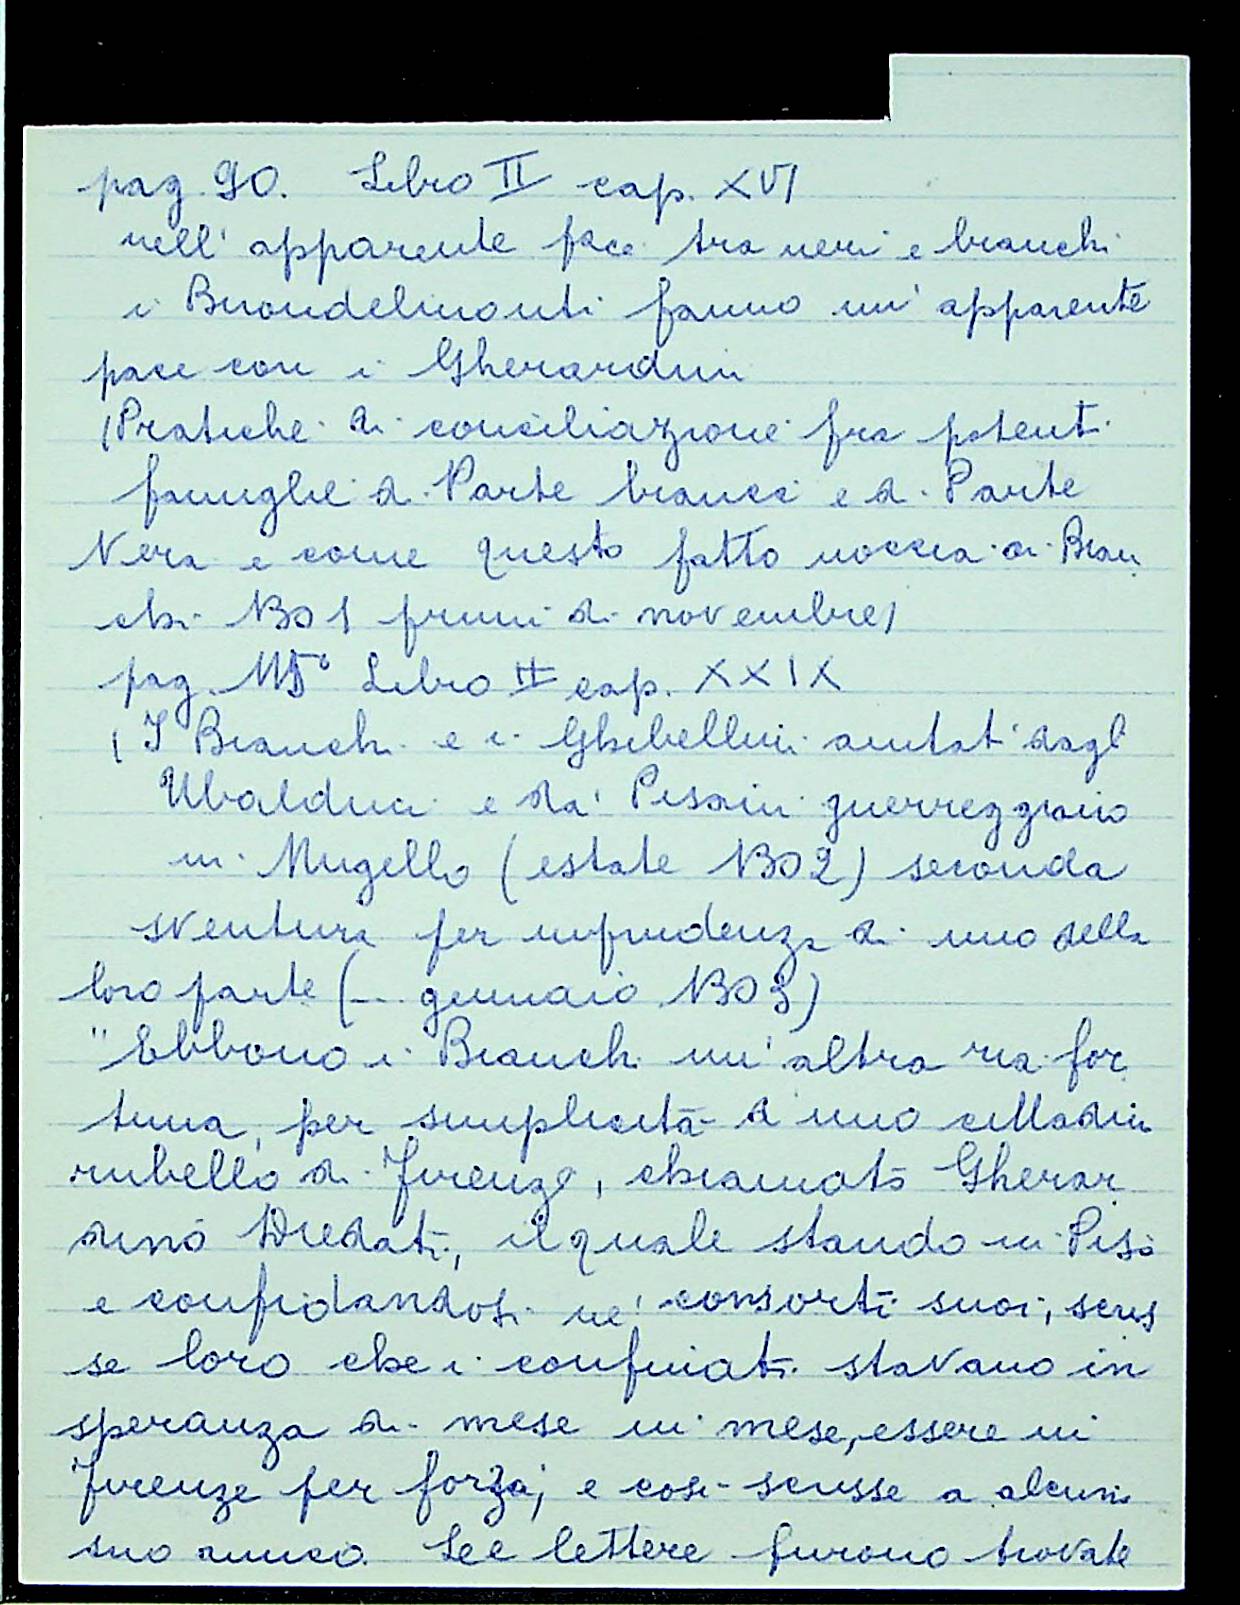 pag. 90. Libro II cap. XVI
nell' apparente pace tra neri e bianchi
i Buondelmonti fanno un' apparente
pace con i Gherardini
(Pratiche di conciliazione fra potenti
famiglie di Parte bianca e di Parte
Nera e come questo fatto noccia ai Bian
chi 1301 primi di novembre)
pag. 115 Libro II cap. XXIX
(I Bianchi e i Ghibellini aiutati dagli
Ubaldini e da' Pisani guerreggiano
in Mugello (estate 1302) seconda
sventura per imprudenza di uno della
loro parte (... gennaio 1303)
"Ebbono i Bianchi un' altra ria for
tuna, per simplicità d' uno cittadin
rubello di Firenze, chiamato Gherar
dino Diedati, il quale stando in Pisa
e confidandosi ne' consorti suoi, scris
se loro che i confinati stavano in
speranza di mese in mese, essere in
Firenze per forza; e così scrisse a alcuni
suo amico. Lee lettere furono trovate